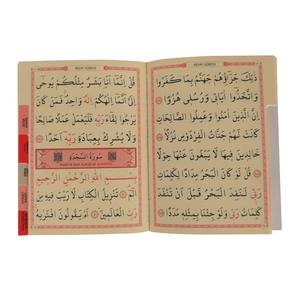 ذٰلِكَ جَزَٓاؤُ۬هُمْ جَهَنَّمُ بِمَا كَفَرُوا
وَاتَّخَذُٓوا اٰيَات۪ي وَرُسُل۪ي هُزُوًا
اِنَّ الَّذ۪ينَ اٰمَنُوا وَعَمِلُوا الصَّالِحَاتِ
كَانَتْ لَهُمْ جَنَّاتُ الْفِرْدَوْسِ نُزُلًا
خَالِد۪ينَ ف۪يهَا لَا يَبْغُونَ عَنْهَا حِوَلًا
قُلْ لَوْ كَانَ الْبَحْرُ مِدَادًا لِكَلِمَاتِ
رَبّ۪ي لَنَفِدَ الْبَحْرُ قَبْلَ اَنْ تَنْفَدَ
كَلِمَاتُ رَبّ۪ي وَلَوْ جِئْنَا بِمِثْلِه۪ مَدَدًا
قُلْ اِنَّمَٓا اَنَا۬ بَشَرٌ مِثْلُكُمْ يُوحٰٓى
اِلَيَّ اَنَّمَٓا اِلٰهُكُمْ اِلٰهٌ وَاحِدٌ فَمَنْ كَانَ
يَرْجُوا لِقَٓاءَ رَبِّه۪ فَلْيَعْمَلْ عَمَلًا صَالِحًا
وَلَا يُشْرِكْ بِعِبَادَةِ رَبِّه۪ٓ اَحَدًا
سُورَةُ السَّجْدَةِ
بِسْمِ اللّٰهِ الرَّحْمٰنِ الرَّح۪يمِ
الٓمٓ تَنْز۪يلُ الْكِتَابِ لَا رَيْبَ ف۪يهِ مِنْ
رَبِّ الْعَالَم۪ينَ اَمْ يَقُولُونَ افْتَرٰيهُ